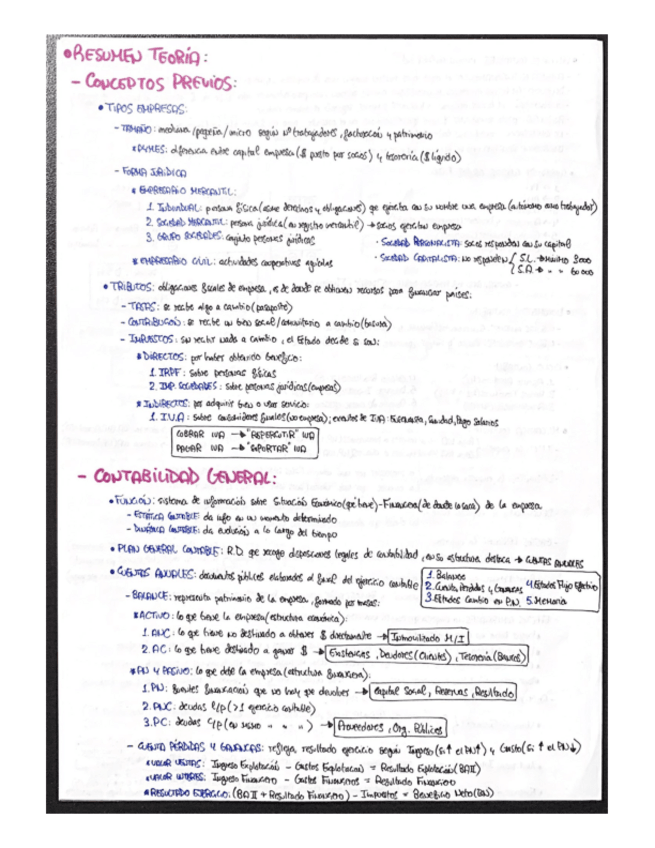 • RESUMEN TEORÍA:
- CONCEPTOS PREVIOS:
• TIPOS EMPRESAS:
- TAMAÑO: mediana/pequeña/micro según nº trabajadores, facturación y patrimonio
* PYMES: diferencia entre capital empresa ($ puesto por socios) y tesorería ($ líquido)
- FORMA JURÍDICA
* EMPRESARIO MERCANTIL:
1. INDIVIDUAL: persona física (asume derechos y obligaciones) que ejercita en su nombre una empresa (autónomo como trabajador)
2. SOCIEDAD MERCANTIL: persona jurídica (en registro mercantil) → socios ejercitan empresa
3. GRUPO SOCIEDADES: conjunto personas jurídicas
· SOCIEDAD PERSONALISTA: socios responden con su capital
· SOCIEDAD CAPITALISTA: no responden { S.L. → mínimo 3000
S.A. → " " 60 000
* EMPRESARIO CIVIL: actividades cooperativas agrícolas
• TRIBUTOS: obligaciones fiscales de empresa, es de donde se obtienen recursos para financiar países:
- TASAS: se recibe algo a cambio (pasaporte)
- CONTRIBUCIÓN: se recibe un bien social/comunitario a cambio (basura)
- IMPUESTOS: sin recibir nada a cambio, el Estado decide si son:
* DIRECTOS: por haber obtenido beneficio:
1. IRPF: sobre personas físicas
2. IMP. SOCIEDADES: sobre personas jurídicas (empresas)
* INDIRECTOS: por adquirir bien o usar servicio:
1. I.V.A: sobre consumidores finales (no empresa); exentos de IVA: Enseñanza, Sanidad, Pago Salarios
COBRAR IVA → "REPERCUTIR" IVA
PAGAR IVA → "SOPORTAR" IVA
- CONTABILIDAD GENERAL:
• FUNCIÓN: sistema de información sobre Situación Económica (qué tiene) - Financiera (de donde lo saca) de la empresa
- ESTÁTICA CONTABLE: da info en un momento determinado
- DINÁMICA CONTABLE: da evolución a lo largo del tiempo
• PLAN GENERAL CONTABLE: R.D que recoge disposiciones legales de contabilidad, en su estructura destaca → CUENTAS ANUALES
• CUENTAS ANUALES: documentos públicos elaborados al final del ejercicio contable
1. Balance
2. Cuenta Pérdidas y Ganancias 4. Estados Flujo Efectivo
3. Estados Cambio en P.N. 5. Memoria
- BALANCE: representa patrimonio de la empresa, formado por masas:
* ACTIVO: lo que tiene la empresa (estructura económica):
1. ANC: lo que tiene no destinado a obtener $ directamente → Inmovilizado M/I
2. AC: lo que tiene destinado a ganar $ → Existencias, Deudores (Clientes), Tesorería (Bancos)
* PN Y PASIVO: lo que debe la empresa (estructura financiera):
1. PN: fuentes financiación que no hay que devolver → Capital Social, Reservas, Resultado
2. PNC: deudas l/p (> 1 ejercicio contable)
3. PC: deudas c/p (en mismo " " ) → Proveedores, Org. Públicos
- CUENTA PÉRDIDAS Y GANANCIAS: refleja resultado ejercicio según Ingreso (si ↑ el PN↑) y Gasto (si ↑ el PN↓)
Ingreso Explotación - Gastos Explotación = Resultado Explotación (BAII)
Ingreso Financiero - Gastos Financieros = Resultado Financiero
* RESULTADO EJERCICIO: (BAII + Resultado Financiero) - Impuestos = Beneficio Neto (BN)